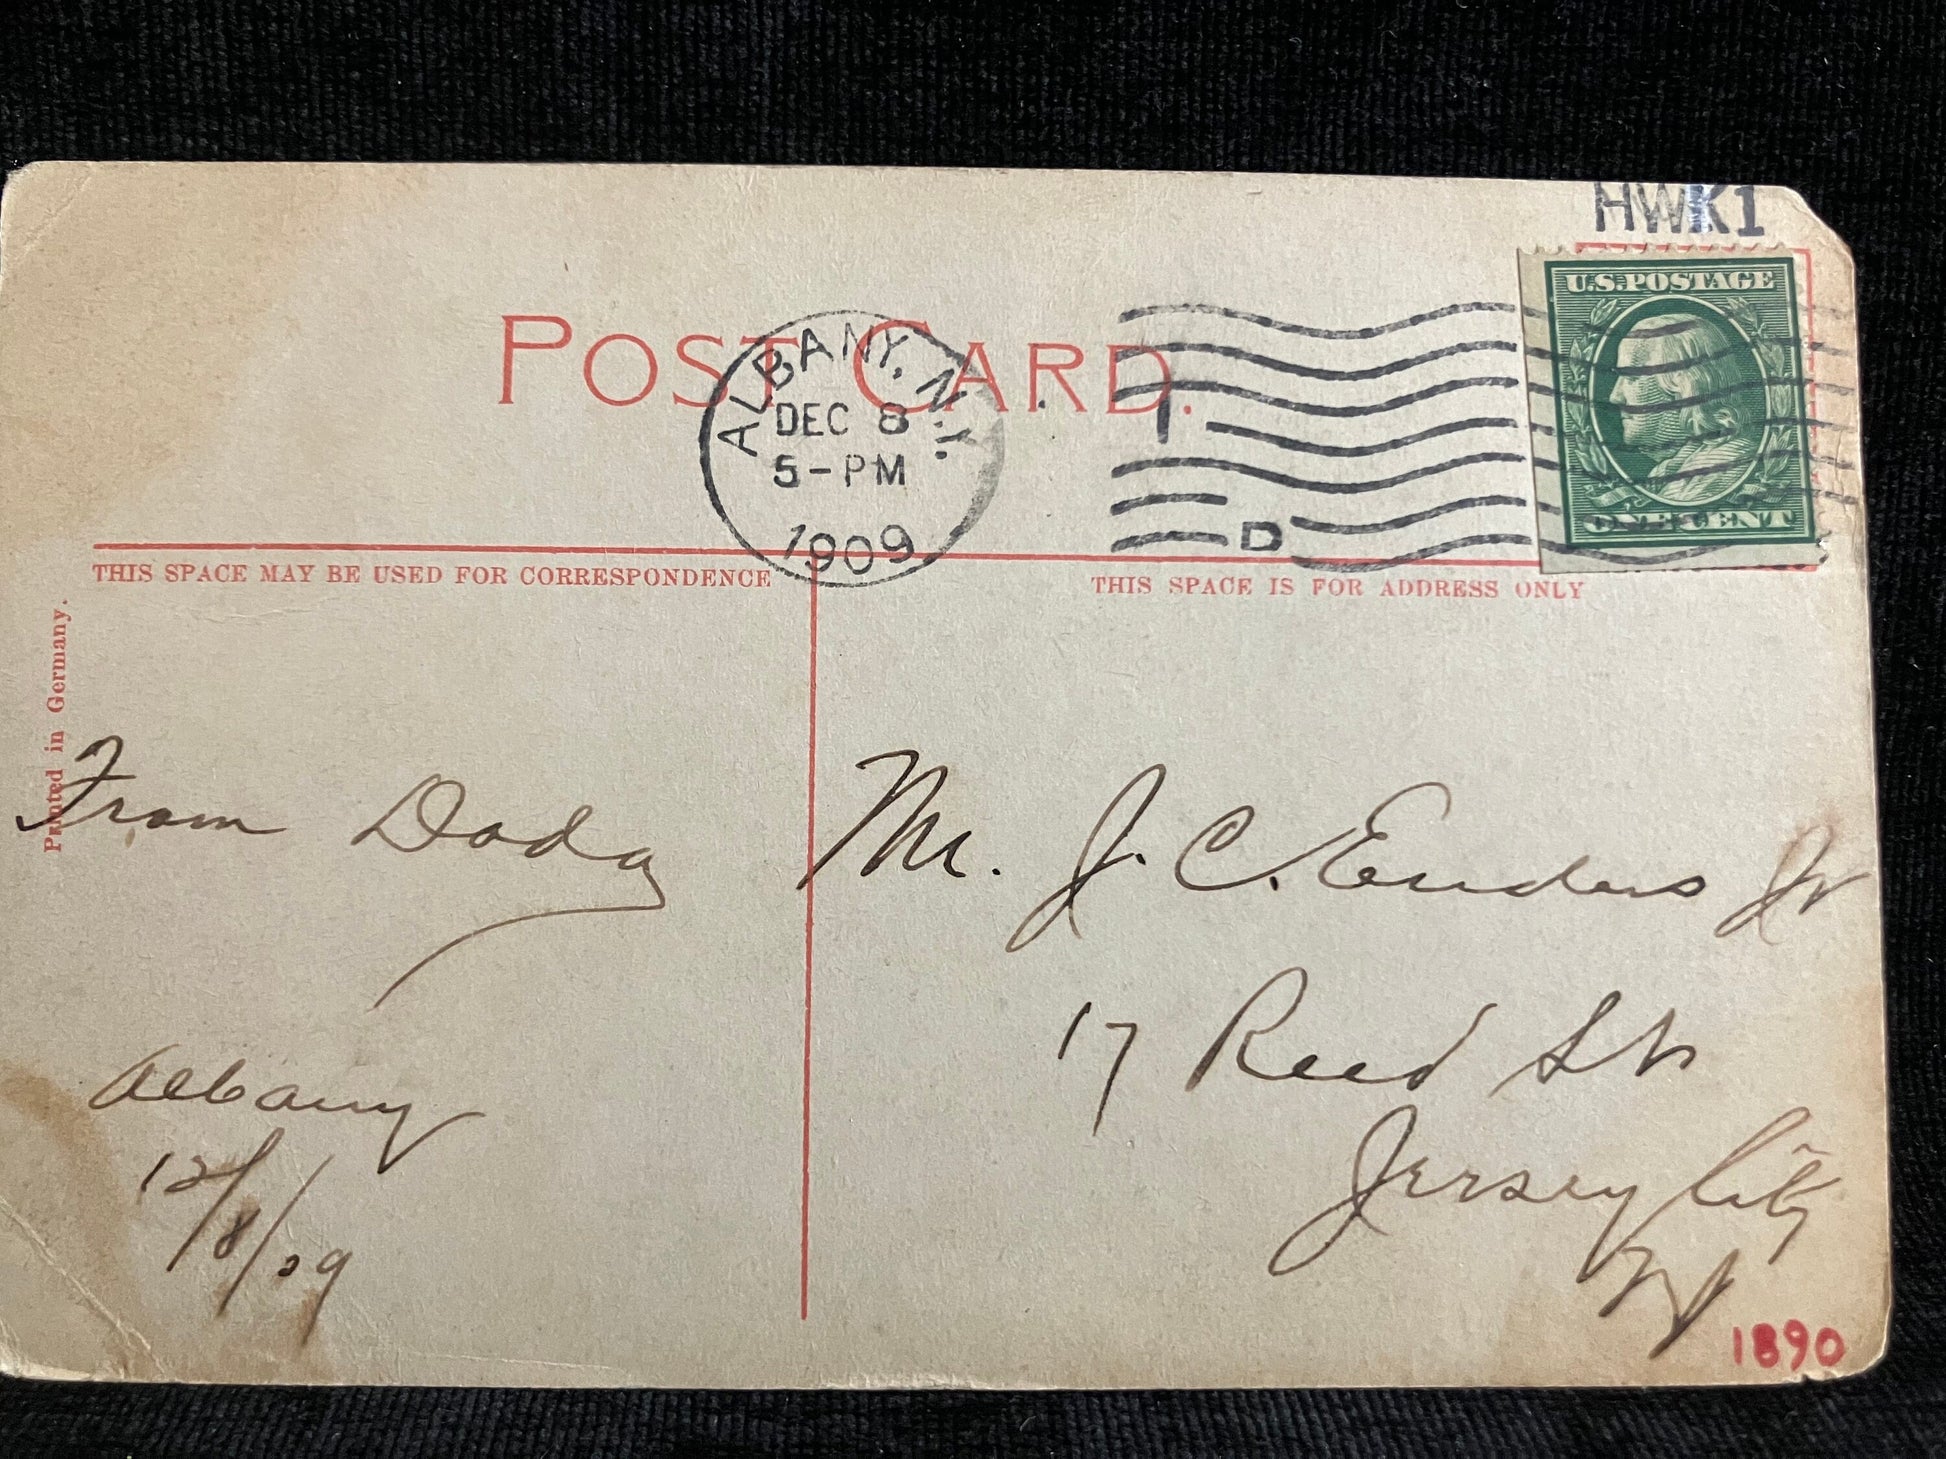 HWK1
U.S. POSTAGE
ONE CENT
POST CARD.
ALBANY, N.Y.
DEC 8
5-PM
1909
1
D
THIS SPACE MAY BE USED FOR CORRESPONDENCE
THIS SPACE IS FOR ADDRESS ONLY
Printed in Germany.
From Dada
Albany
12/8/09
Mr. J. C. Enders Jr
17 Reed St
Jersey City
NJ
1890